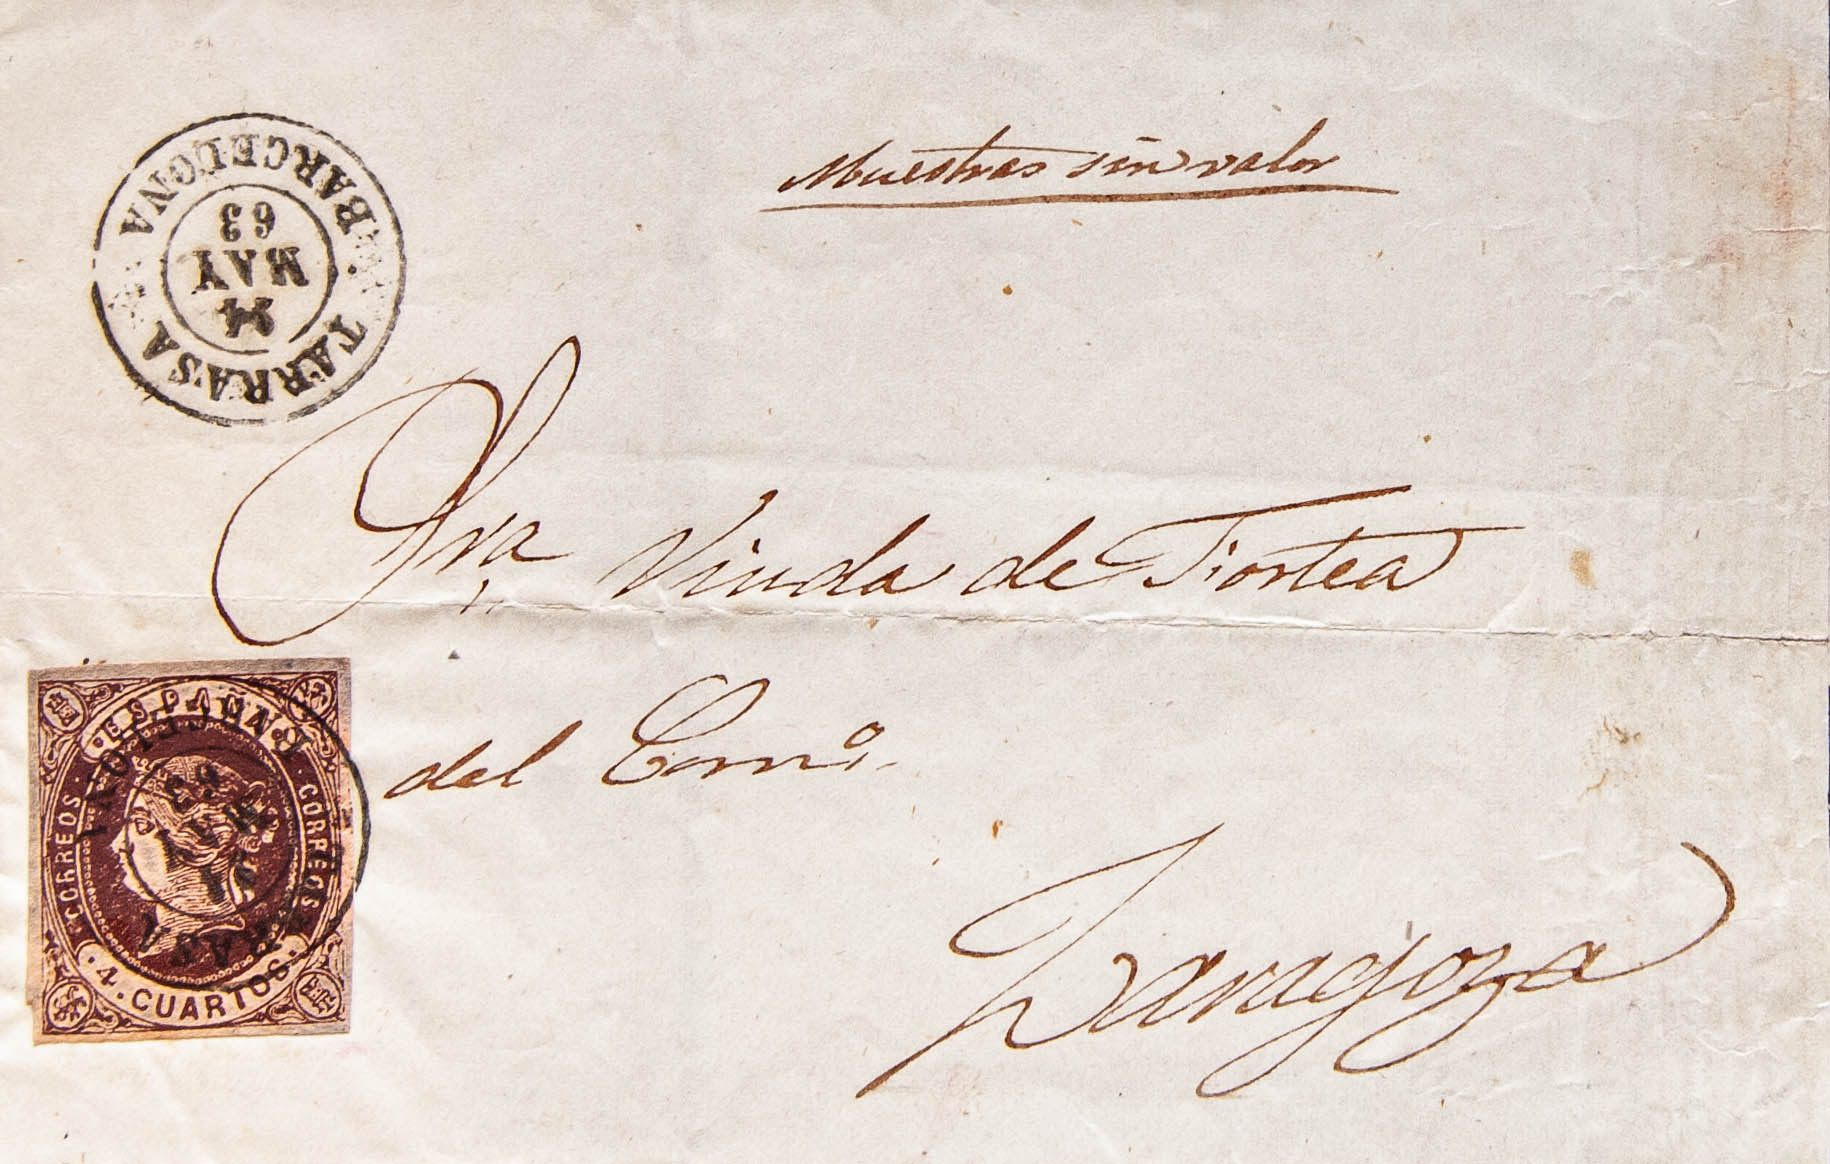 Muestras sin valor
TARRASA
BARCELONA
24
MAY
63
Sra Viuda de Fortea
del Comº.
Zaragoza
ESPAÑA
CORREOS
CORREOS
4. CUARTOS.
MAY
63